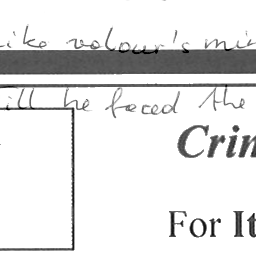 like velour's min
ill he faced the
Crin
For It